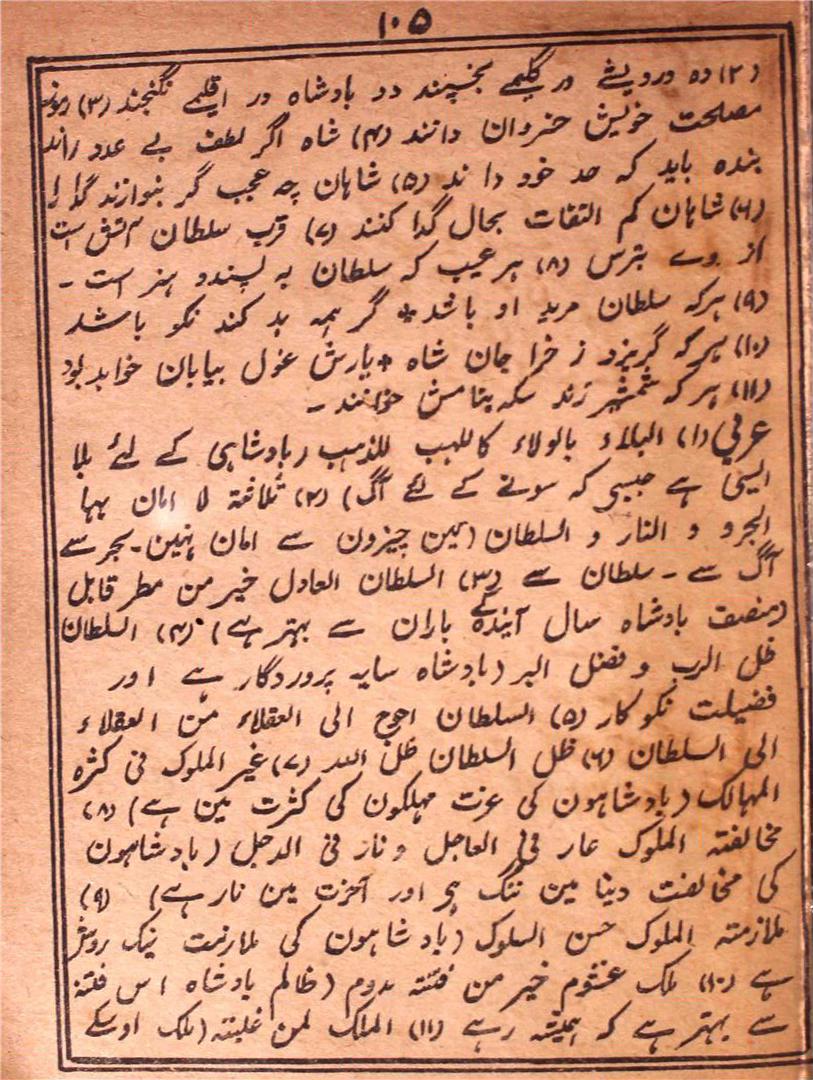 ۱۰۵
(۲) دہ درویشے در گلیمے بخسپند دو بادشاہ در اقلیمے نگنجند (۳) رموز
مصلحت خویش خسروان دانند (۴) شاہ اگر لطف بے عدد راند
بندہ باید کہ حد خود داند (۵) شاہان چہ عجب گر بنوازند گدا را
(۶) شاہان کم التفات بحال گدا کنند (۷) قرب سلطان آتش است
از وے بترس (۸) ہر عیب کہ سلطان بہ پسندد ہنر است ۔
(۹) ہرکہ سلطان مرید او باشد * گر ہمہ بد کند نکو باشد
(۱۰) ہر کہ گریزد ز خراجان شاہ * یارش غول بیابان خواہد بود
(۱۱) ہر کہ شمشیر زند سکہ بنامش خوانند ۔
عربی (۱) البلاء بالولاء کاللہب للذہب (بادشاہی کے لئے بلا
ایسی ہے جیسی کہ سونے کے لئے آگ) (۲) ثلاثۃ لا امان بہا
البحر و النار و السلطان (تین چیزون سے امان نہین۔ بحر سے
آگ سے ۔ سلطان سے (۳) السلطان العادل خیر من مطر قابل
(منصف بادشاہ سال آیندہ کے باران سے بہتر ہے) (۴) السلطان
ظل الرب و فضل البر (بادشاہ سایہ پروردگار ہے اور
فضیلت نکو کار (۵) السلطان احوج الی العقلاء من العقلاء
الی السلطان (۶) ظل السلطان ظل اللہ (۷) غیر الملوک فی کثرہ
المہالک (بادشاہون کی عزت مہلکون کی کثرت مین ہے) (۸)
مخالفتہ الملوک عار فی العاجل و نار فی الدجل (بادشاہون
کی مخالفت دینا مین ننگ ہی اور آخرت مین نار ہے) (۹)
ملازمتہ الملوک حسن السلوک (بادشاہون کی ملازمت نیک روش
ہے (۱۰) ملک غشوم خیر من فتنہ یدوم (ظالم بادشاہ اس فتنہ
سے بہتر ہے کہ ہمیشہ رہے (۱۱) الملک لمن غلبتہ (ملک اوسکے